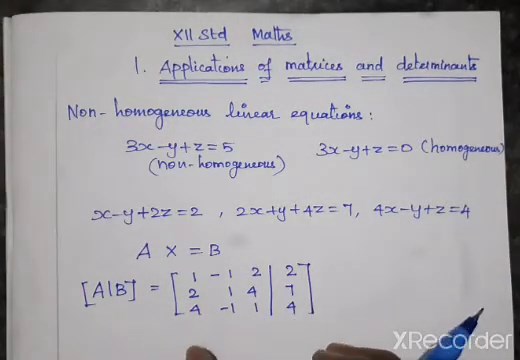 XII Std Maths
1. Applications of matrices and determinants
Non-homogeneous linear equations:
3x-y+z=5 3x-y+z=0 (homogeneous)
(non-homogeneous)
x-y+2z=2 , 2x+y+4z=7, 4x-y+z=4
A X = B
[A|B] = [ 1 -1 2 | 2
2 1 4 | 7
4 -1 1 | 4 ]
XRecorder